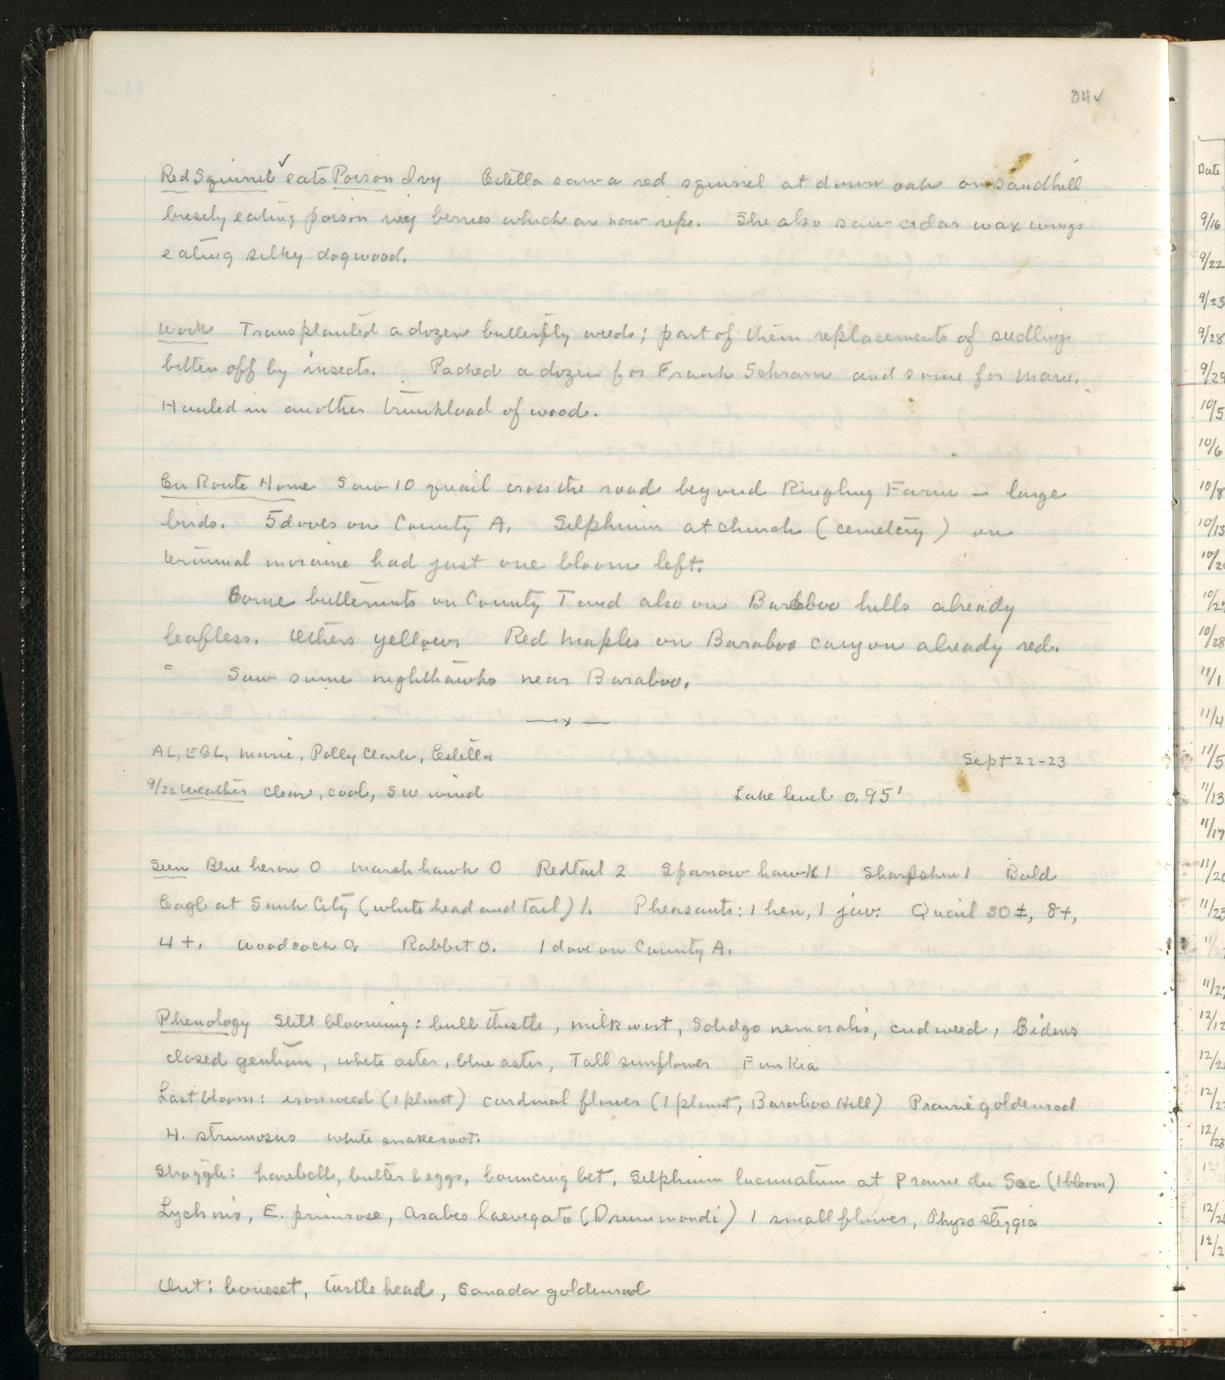 84✓
Red Squirrel ✓ eats Poison Ivy Estella saw a red squirrel at down oak on sandhill
busily eating poison ivy berries which are now ripe. She also saw cedar wax wings
eating silky dogwood.
Work Transplanted a dozen butterfly weeds; part of them replacements of seedlings
bitten off by insects. Packed a dozen for Frank Schram and some for Marie.
Hauled in another trunkload of wood.
En Route Home Saw 10 quail cross the road beyond Ringling Farm - large
birds. 5 doves on County A. Silphium at church (cemetery) on
terminal moraine had just one bloom left.
Some butternuts on County T and also on Baraboo hills already
leafless. Others yellow. Red maples on Baraboo canyon already red.
Saw some nighthawks near Baraboo.
—x—
AL, EBL, Marie, Polly Clark, Estella Sept 22-23
9/22 Weather clear, cool, SW wind Lake level 0.95'
Seen Blue heron 0 Marsh hawk 0 Redtail 2 Sparrow hawk 1 Sharpshin 1 Bald
Eagle at Sauk City (white head and tail) 1. Pheasants: 1 hen, 1 juv. Quail 30±, 8+,
4+. Woodcock 0. Rabbit 0. 1 dove on County A.
Phenology Still blooming: bull thistle, milkwort, Solidgo nemoralis, cudweed, Bidens
closed gentian, white aster, blue aster, Tall sunflower Funkia
Last bloom: ironweed (1 plant) cardinal flower (1 plant, Baraboo Hill) Prairie goldenrod
H. strumosus white snakeroot.
Straggle: harebell, butter & eggs, bouncing bet, Silphium lacinatum at Prairie du Sac (1 bloom)
Lychnis, E. primrose, Arabis laevigata (Drummondi) 1 small flower, Physostegia
Out: boneset, turtlehead, Canada goldenrod
Date
9/16
9/22
9/23
9/28
9/29
10/5
10/6
10/8
10/13
10/28
11/1
11/4
11/5
11/13
11/17